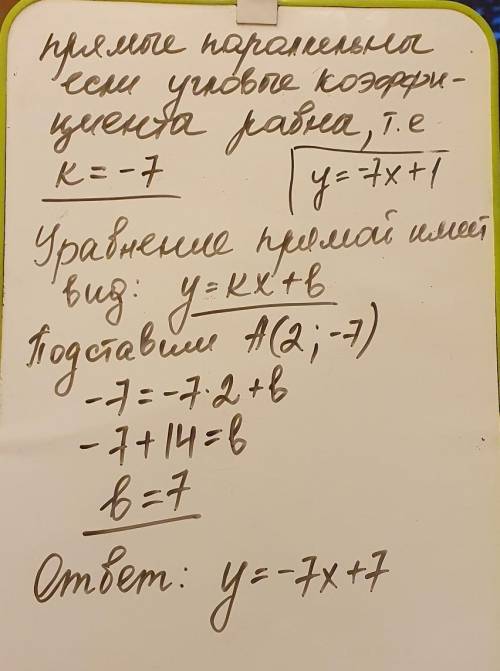 прямые параллельны
если угловые коэффи-
циента равна, т.е
к = -7
y = -7x + 1
Уравнение прямой имеет
вид: y = кx + b
Подставим А(2; -7)
-7 = -7·2 + b
-7 + 14 = b
b = 7
Ответ: y = -7x + 7